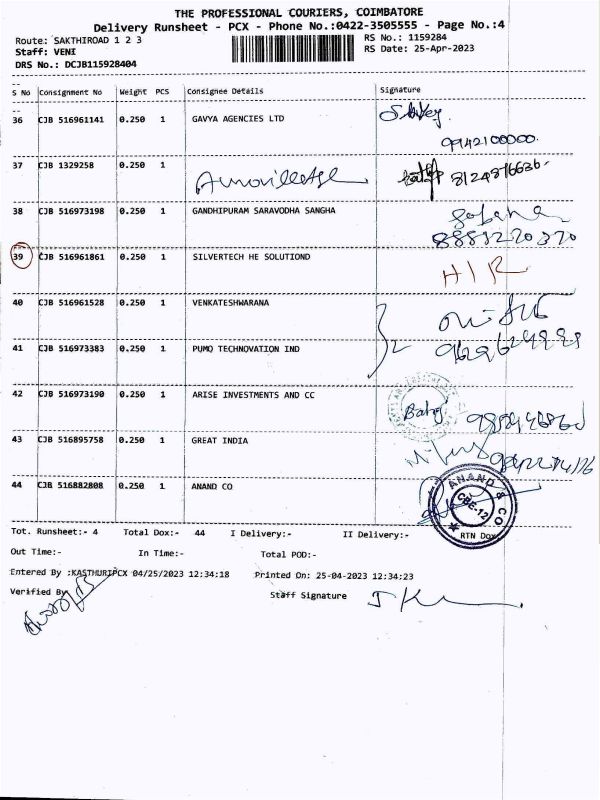 THE PROFESSIONAL COURIERS, COIMBATORE
Delivery Runsheet - PCX - Phone No.:0422-3505555 - Page No.:4
Route: SAKTHIROAD 1 2 3
Staff: VENI
DRS No.: DCJB115928404
RS No.: 1159284
RS Date: 25-Apr-2023
S No Consignment No Weight PCS Consignee Details Signature
36 CJB 516961141 0.250 1 GAVYA AGENCIES LTD
9942100000
37 CJB 1329258 0.250 1
8124816636
38 CJB 516973198 0.250 1 GANDHIPURAM SARAVODHA SANGHA
8883220370
39 CJB 516961861 0.250 1 SILVERTECH HE SOLUTIOND
H/R
40 CJB 516961528 0.250 1 VENKATESHWARANA
41 CJB 516973383 0.250 1 PUMO TECHNOVATION IND
2
42 CJB 516973190 0.250 1 ARISE INVESTMENTS AND CC
43 CJB 516895758 0.250 1 GREAT INDIA
44 CJB 516882808 0.250 1 ANAND CO
ANAND & CO
CBE-12
RTN Dox
Tot. Runsheet:- 4 Total Dox:- 44 I Delivery:- II Delivery:-
Out Time:- In Time:- Total POD:-
Entered By :KASTHURIPCX 04/25/2023 12:34:18 Printed On: 25-04-2023 12:34:23
Verified By
Staff Signature